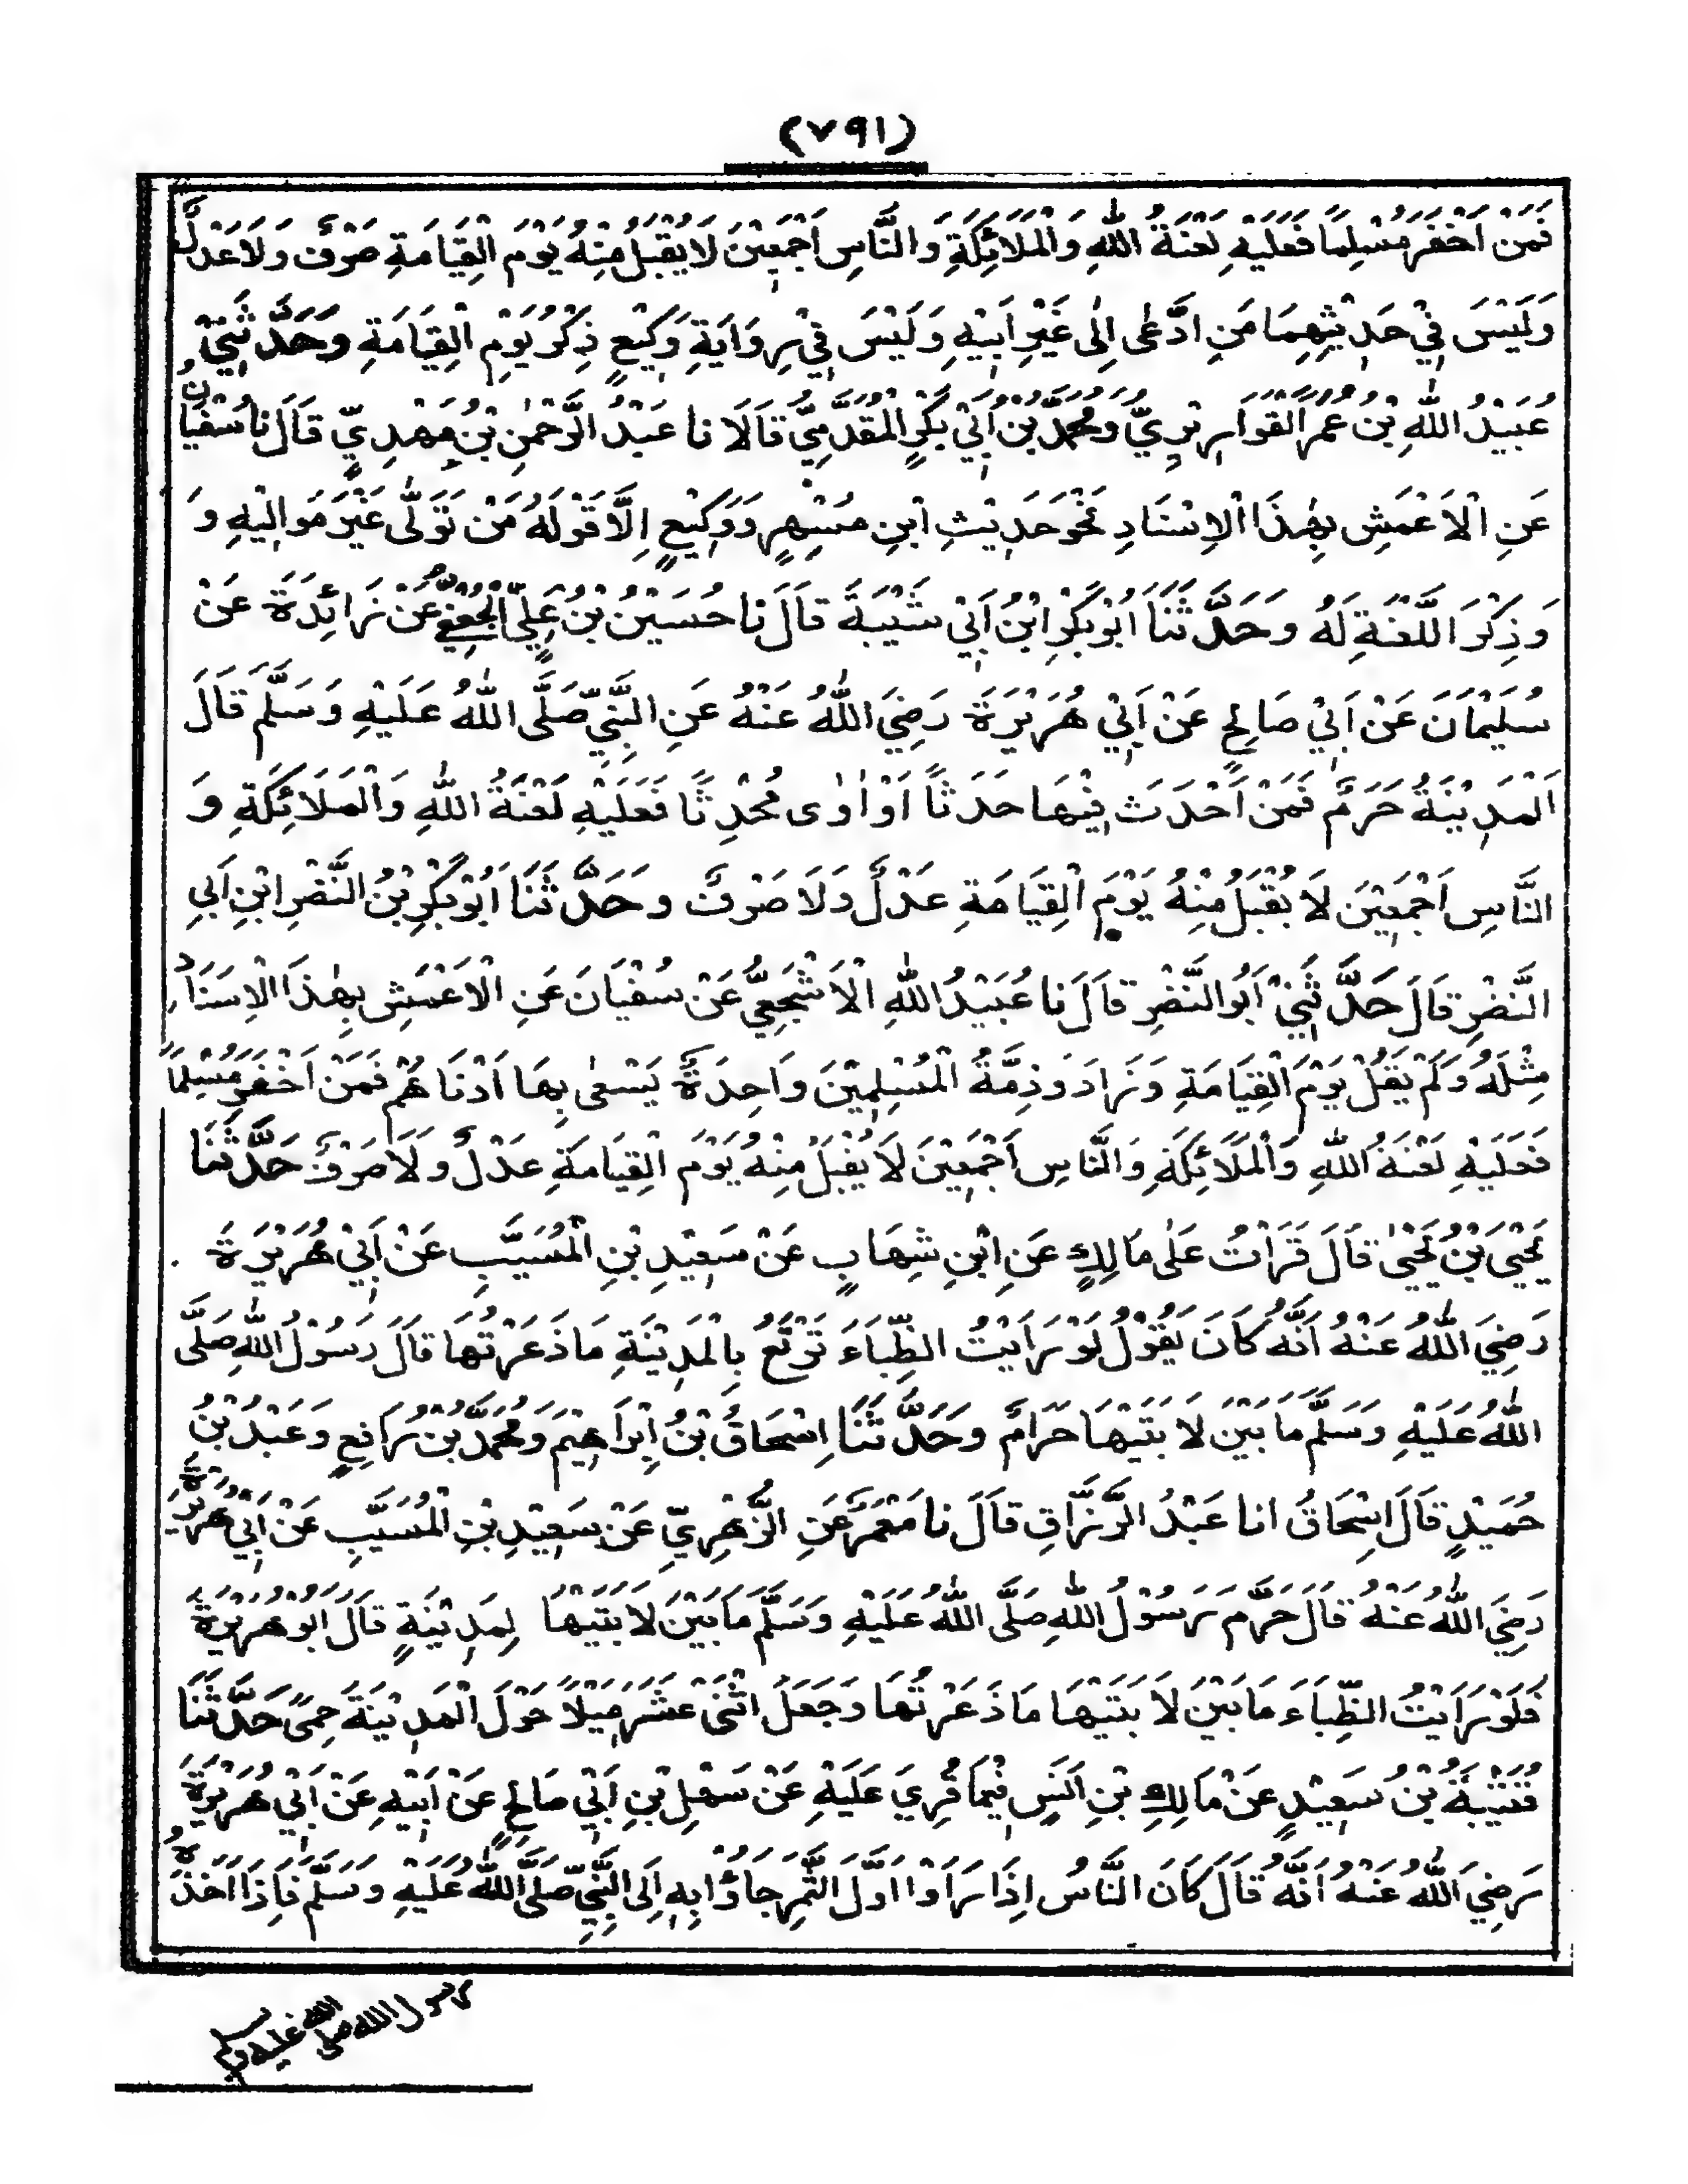 (٧٩١)
فَمَنْ اَخْفَرَ مُسْلِمًا فَعَلَيْهِ لَعْنَةُ اللّٰهِ وَالْمَلَائِكَةِ وَالنَّاسِ اَجْمَعِيْنَ لَا يُقْبَلُ مِنْهُ يَوْمَ الْقِيَامَةِ صَرْفٌ وَلَا عَدْلٌ
وَلَيْسَ فِيْ حَدِيْثِهِمَا مَنِ ادَّعٰى اِلٰى غَيْرِ اَبِيْهِ وَلَيْسَ فِيْ رِوَايَةِ وَكِيْعٍ ذِكْرُ يَوْمِ الْقِيَامَةِ وَحَدَّثَنِيْ
عُبَيْدُ اللّٰهِ بْنُ عُمَرَ الْقَوَارِيْرِيُّ وَمُحَمَّدُ بْنُ اَبِيْ بَكْرٍ الْمُقَدَّمِيُّ قَالَا نا عَبْدُ الرَّحْمٰنِ بْنُ مَهْدِيٍّ قَالَ نا سُفْيَانُ
عَنِ الْاَعْمَشِ بِهٰذَا الْاِسْنَادِ نَحْوَ حَدِيْثِ ابْنِ مُسْهِرٍ وَوَكِيْعٍ اِلَّا قَوْلَهُ مَنْ تَوَلّٰى غَيْرَ مَوَالِيْهِ وَ
وَذِكْرَ اللَّعْنَةِ لَهُ وَحَدَّثَنَا اَبُوْ بَكْرِ ابْنُ اَبِيْ شَيْبَةَ قَالَ نا حُسَيْنُ بْنُ عَلِيٍّ الْجُعْفِيُّ عَنْ زَائِدَةَ عَنْ
سُلَيْمَانَ عَنْ اَبِيْ صَالِحٍ عَنْ اَبِيْ هُرَيْرَةَ رَضِيَ اللّٰهُ عَنْهُ عَنِ النَّبِيِّ صَلَّى اللّٰهُ عَلَيْهِ وَسَلَّمَ قَالَ
اَلْمَدِيْنَةُ حَرَمٌ فَمَنْ اَحْدَثَ فِيْهَا حَدَثًا اَوْ اٰوٰى مُحْدِثًا فَعَلَيْهِ لَعْنَةُ اللّٰهِ وَالْمَلَائِكَةِ وَ
النَّاسِ اَجْمَعِيْنَ لَا يُقْبَلُ مِنْهُ يَوْمَ الْقِيَامَةِ عَدْلٌ وَلَا صَرْفٌ وَحَدَّثَنَا اَبُوْ بَكْرِ بْنُ النَّضْرِ ابْنِ اَبِي
النَّضْرِ قَالَ حَدَّثَنِيْ اَبُو النَّضْرِ قَالَ نا عُبَيْدُ اللّٰهِ الْاَشْجَعِيُّ عَنْ سُفْيَانَ عَنِ الْاَعْمَشِ بِهٰذَا الْاِسْنَادِ
مِثْلَهُ وَلَمْ يَقُلْ يَوْمَ الْقِيَامَةِ وَزَادَ وَذِمَّةُ الْمُسْلِمِيْنَ وَاحِدَةٌ يَسْعٰى بِهَا اَدْنَاهُمْ فَمَنْ اَخْفَرَ مُسْلِمًا
فَعَلَيْهِ لَعْنَةُ اللّٰهِ وَالْمَلَائِكَةِ وَالنَّاسِ اَجْمَعِيْنَ لَا يُقْبَلُ مِنْهُ يَوْمَ الْقِيَامَةِ عَدْلٌ وَلَا صَرْفٌ حَدَّثَنَا
يَحْيَى بْنُ يَحْيٰى قَالَ قَرَاْتُ عَلٰى مَالِكٍ عَنِ ابْنِ شِهَابٍ عَنْ سَعِيْدِ بْنِ الْمُسَيَّبِ عَنْ اَبِيْ هُرَيْرَةَ
رَضِيَ اللّٰهُ عَنْهُ اَنَّهُ كَانَ يَقُوْلُ لَوْ رَاَيْتُ الظِّبَاءَ تَرْتَعُ بِالْمَدِيْنَةِ مَا ذَعَرْتُهَا قَالَ رَسُوْلُ اللّٰهِ صَلَّى
اللّٰهُ عَلَيْهِ وَسَلَّمَ مَا بَيْنَ لَابَتَيْهَا حَرَامٌ وَحَدَّثَنَا اِسْحَاقُ بْنُ اِبْرَاهِيْمَ وَمُحَمَّدُ بْنُ رَافِعٍ وَعَبْدُ بْنُ
حُمَيْدٍ قَالَ اِسْحَاقُ انا عَبْدُ الرَّزَّاقِ قَالَ نا مَعْمَرٌ عَنِ الزُّهْرِيِّ عَنْ سَعِيْدِ بْنِ الْمُسَيَّبِ عَنْ اَبِيْ هُرَيْرَةَ
رَضِيَ اللّٰهُ عَنْهُ قَالَ حَرَّمَ رَسُوْلُ اللّٰهِ صَلَّى اللّٰهُ عَلَيْهِ وَسَلَّمَ مَا بَيْنَ لَابَتَيْهَا لِمَدِيْنَةٍ قَالَ اَبُوْ هُرَيْرَةَ
فَلَوْ رَاَيْتُ الظِّبَاءَ مَا بَيْنَ لَابَتَيْهَا مَا ذَعَرْتُهَا وَجَعَلَ اثْنَيْ عَشَرَ مِيْلًا حَوْلَ الْمَدِيْنَةَ حِمًى حَدَّثَنَا
قُتَيْبَةُ بْنُ سَعِيْدٍ عَنْ مَالِكِ بْنِ اَنَسٍ فِيْمَا قُرِيَ عَلَيْهِ عَنْ سَهْلِ بْنِ اَبِيْ صَالِحٍ عَنْ اَبِيْهِ عَنْ اَبِيْ هُرَيْرَةَ
رَضِيَ اللّٰهُ عَنْهُ اَنَّهُ قَالَ كَانَ النَّاسُ اِذَا رَاَوْا اَوَّلَ الثَّمَرِ جَاؤُا بِهِ اِلَى النَّبِيِّ صَلَّى اللّٰهُ عَلَيْهِ وَسَلَّمَ فَاِذَا اَخَذَهُ
رسول الله صلى الله عليه وسلم